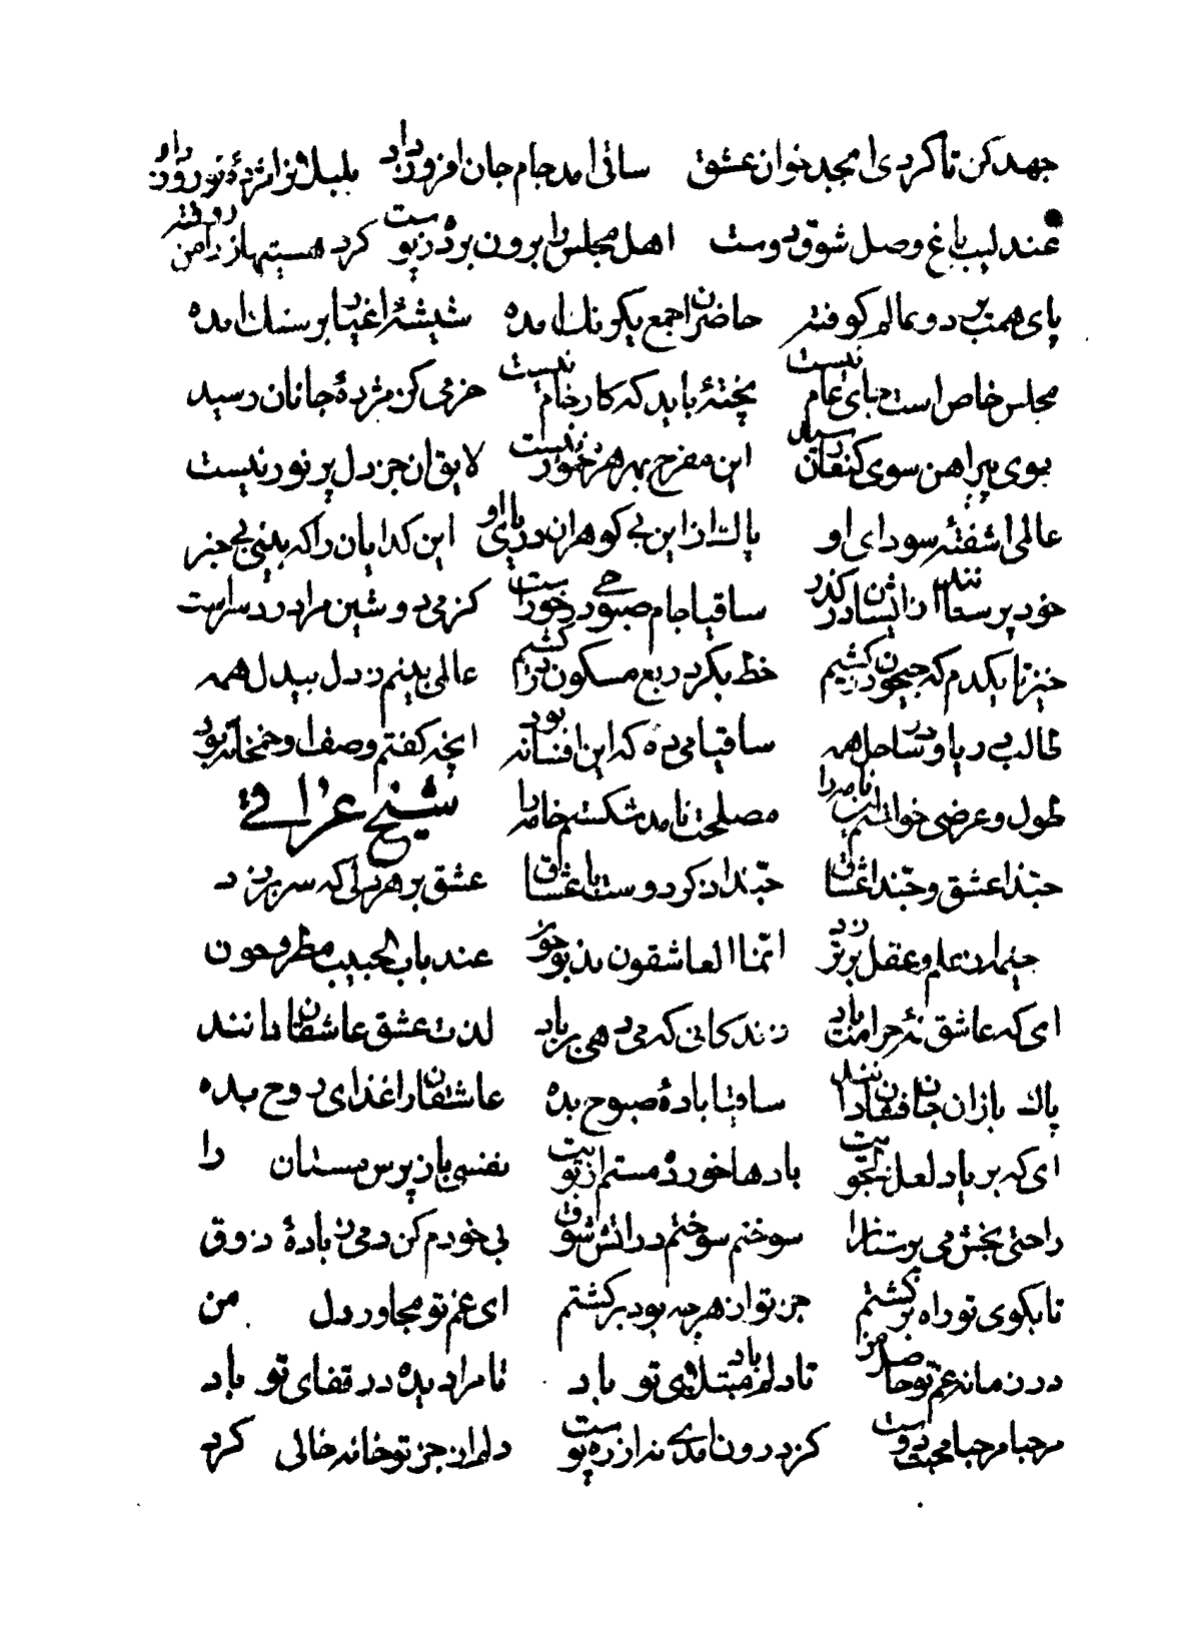 جهد کن تا کردی ابجد خوان عشق ساقی امد جام جان افروز داد بلبلانرا مژدهٔ نوروز داد
عندلیب باغ وصل شوق دوست اهل مجلس را برون برد ز پوست کرد هستیها ز دامن روفته
پای همت بر دو عالم کوفته حاضران جمع یکرنک امده شیشهٔ اغیار بر سنک امده
مجلس خاص است جای عام نیست پختهٔ باید که کار خام نیست خرمی کن مژدهٔ جانان رسید
بوی پیراهن سوی کنعان رسید این مفرح بهر هر رنجور نیست لایق ان جز دل پر نور نیست
عالمی اشفتهٔ سودای او پاک از این بی کوهران دریای او این کدایان را که بینی بی خبر
خود پرستانند از ایشان در کذر ساقیا جام صبوحی در خورست کز می دوشین مرا درد سرست
خیز تا یکدم که جیحون در کشیم خط بکرد ربع مسکون در کشیم عالمی بینم ز دل بیدل همه
طالب دریا و در ساحل همه ساقیا می ده که این افسانه بود انچه کفتم وصف او خمخانه بود
طول و عرضی خواستم این نامه را مصلحت نامد شکستم خامه را شیخ عراقی
حبّذا عشق و حبّذا عشاق حبّذا ذکر دوست با عشاق عشق بر هر دلی که سر برزد
خیمه از علم و عقل برتر زد انّما العاشقون مذبوحون عند باب الحبیب مطروحون
ای که عاشق نهٔ حرامت باد زندکانی که می دهی بر باد لذت عشق عاشقان دانند
پاک بازان جان فشان دانند ساقیا بادهٔ صبوح بده عاشقانرا غذای روح بده
ای که بر یاد لعل بادها خورده مستم از نفسی باز پرس مستان را
راحتی بخش می پرستانرا سوختم سوختم در اتش شوق بی خودم کن دمی ز بادهٔ ذوق
تا بکوی تو راه بر کشتم جز تو از هر چه بود بر کشتم ای غم تو مجاور دل من
در زمانه غم تو حاصل من تا دلم مبتلای تو باد نامراد دیده در قفای تو باد
مرحبا مرحبا محبت دوست کز درون امدی نه از ره پوست دلم از جز تو خانه خالی کرد